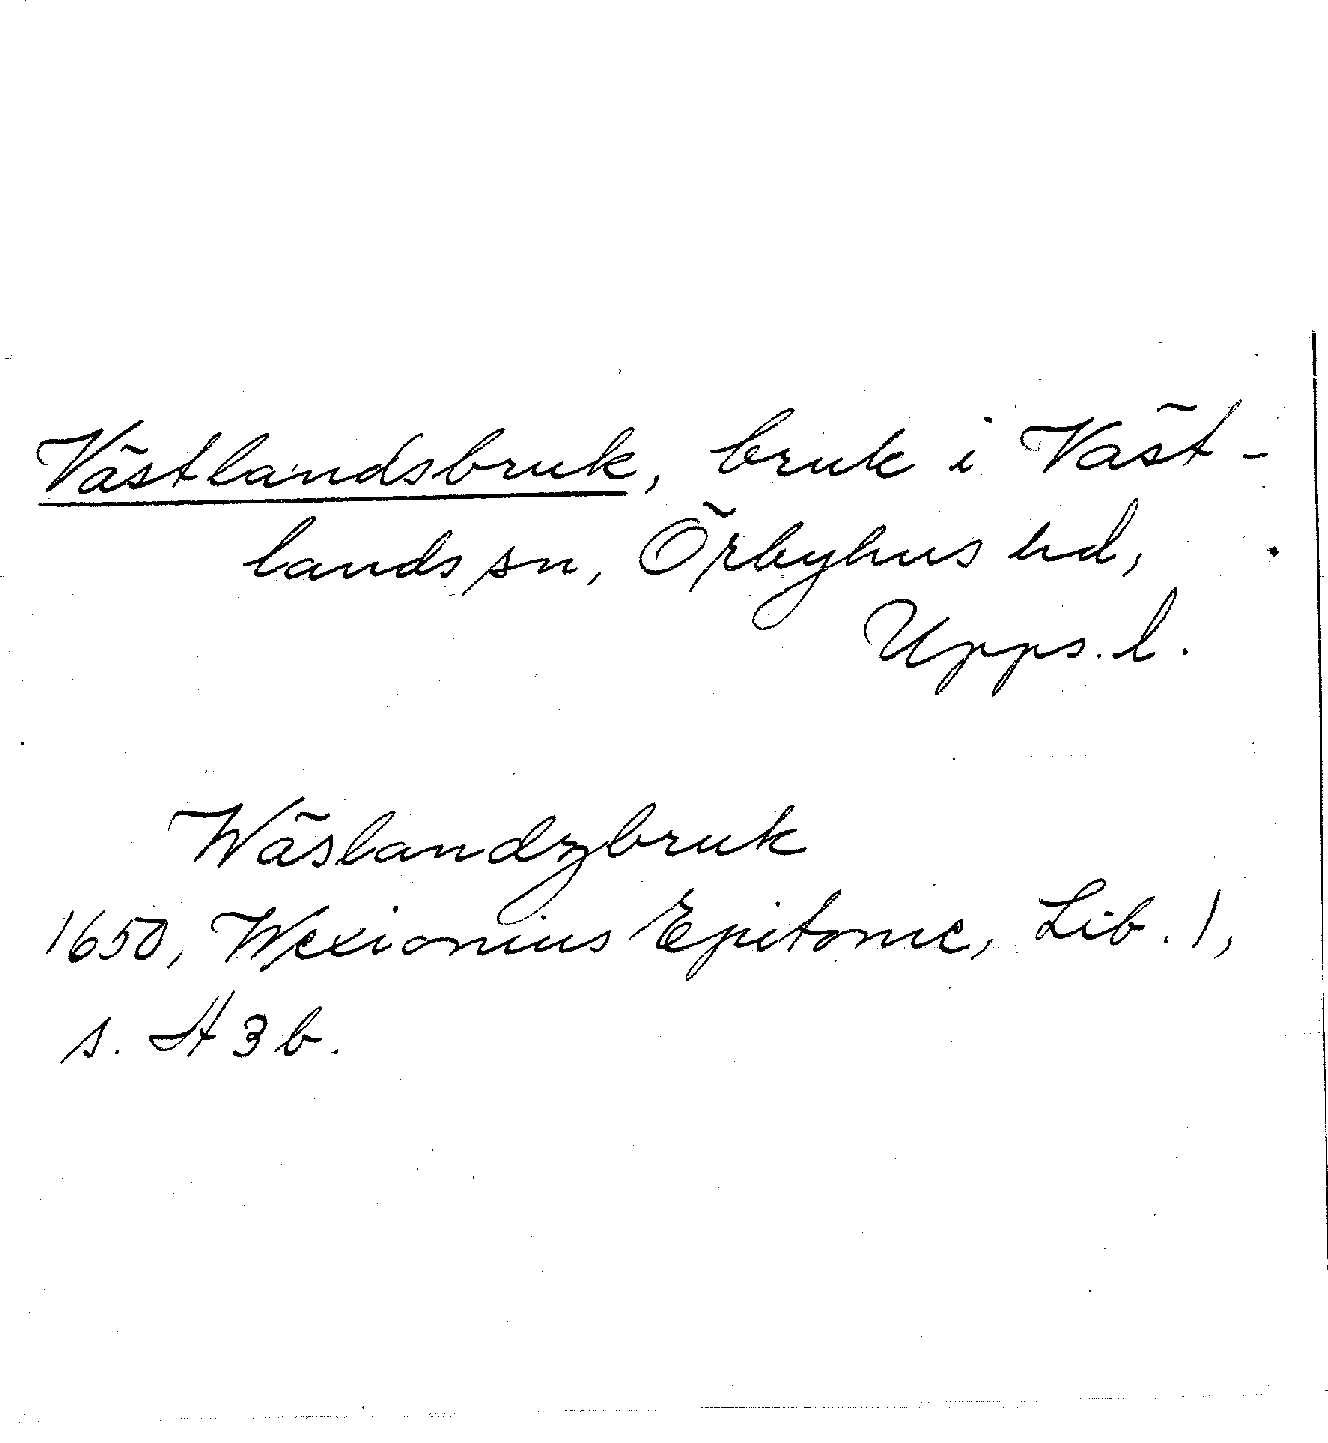 Västlandsbruk, bruk i Väst-
lands sn, Örbyhus hd,
Upps. l.
Wäslandzbruk
1650, Wexionius Epitome, Lib. 1,
s. H 3 b.